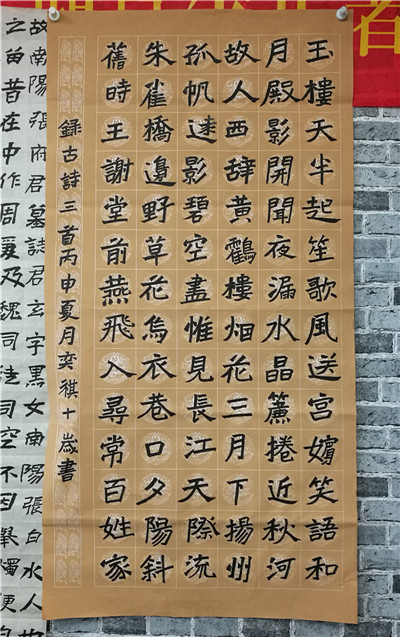 玉樓天半起笙歌風送宮嬪笑語和
月殿影開聞夜漏水晶簾捲近秋河
故人西辭黃鶴樓烟花三月下揚州
孤帆遠影碧空盡惟見長江天際流
朱雀橋邊野草花烏衣巷口夕陽斜
舊時王謝堂前燕飛入尋常百姓家
錄古詩三首丙申夏月奕祺十歲書
故南陽張府君墓誌君玄字黑女南陽張白水人
之苗昔在中作周爰及魏司徒司空不因舉燭便
者